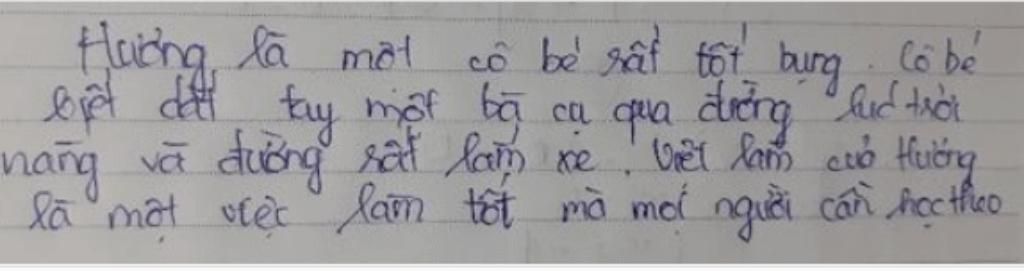 Hường là một cô bé rất tốt bụng. Cô bé
biết dắt tay một bà cụ qua đường lúc trời
nắng và đường rất lắm xe. Việc làm của Hường
là một việc làm tốt mà mọi người cần học theo